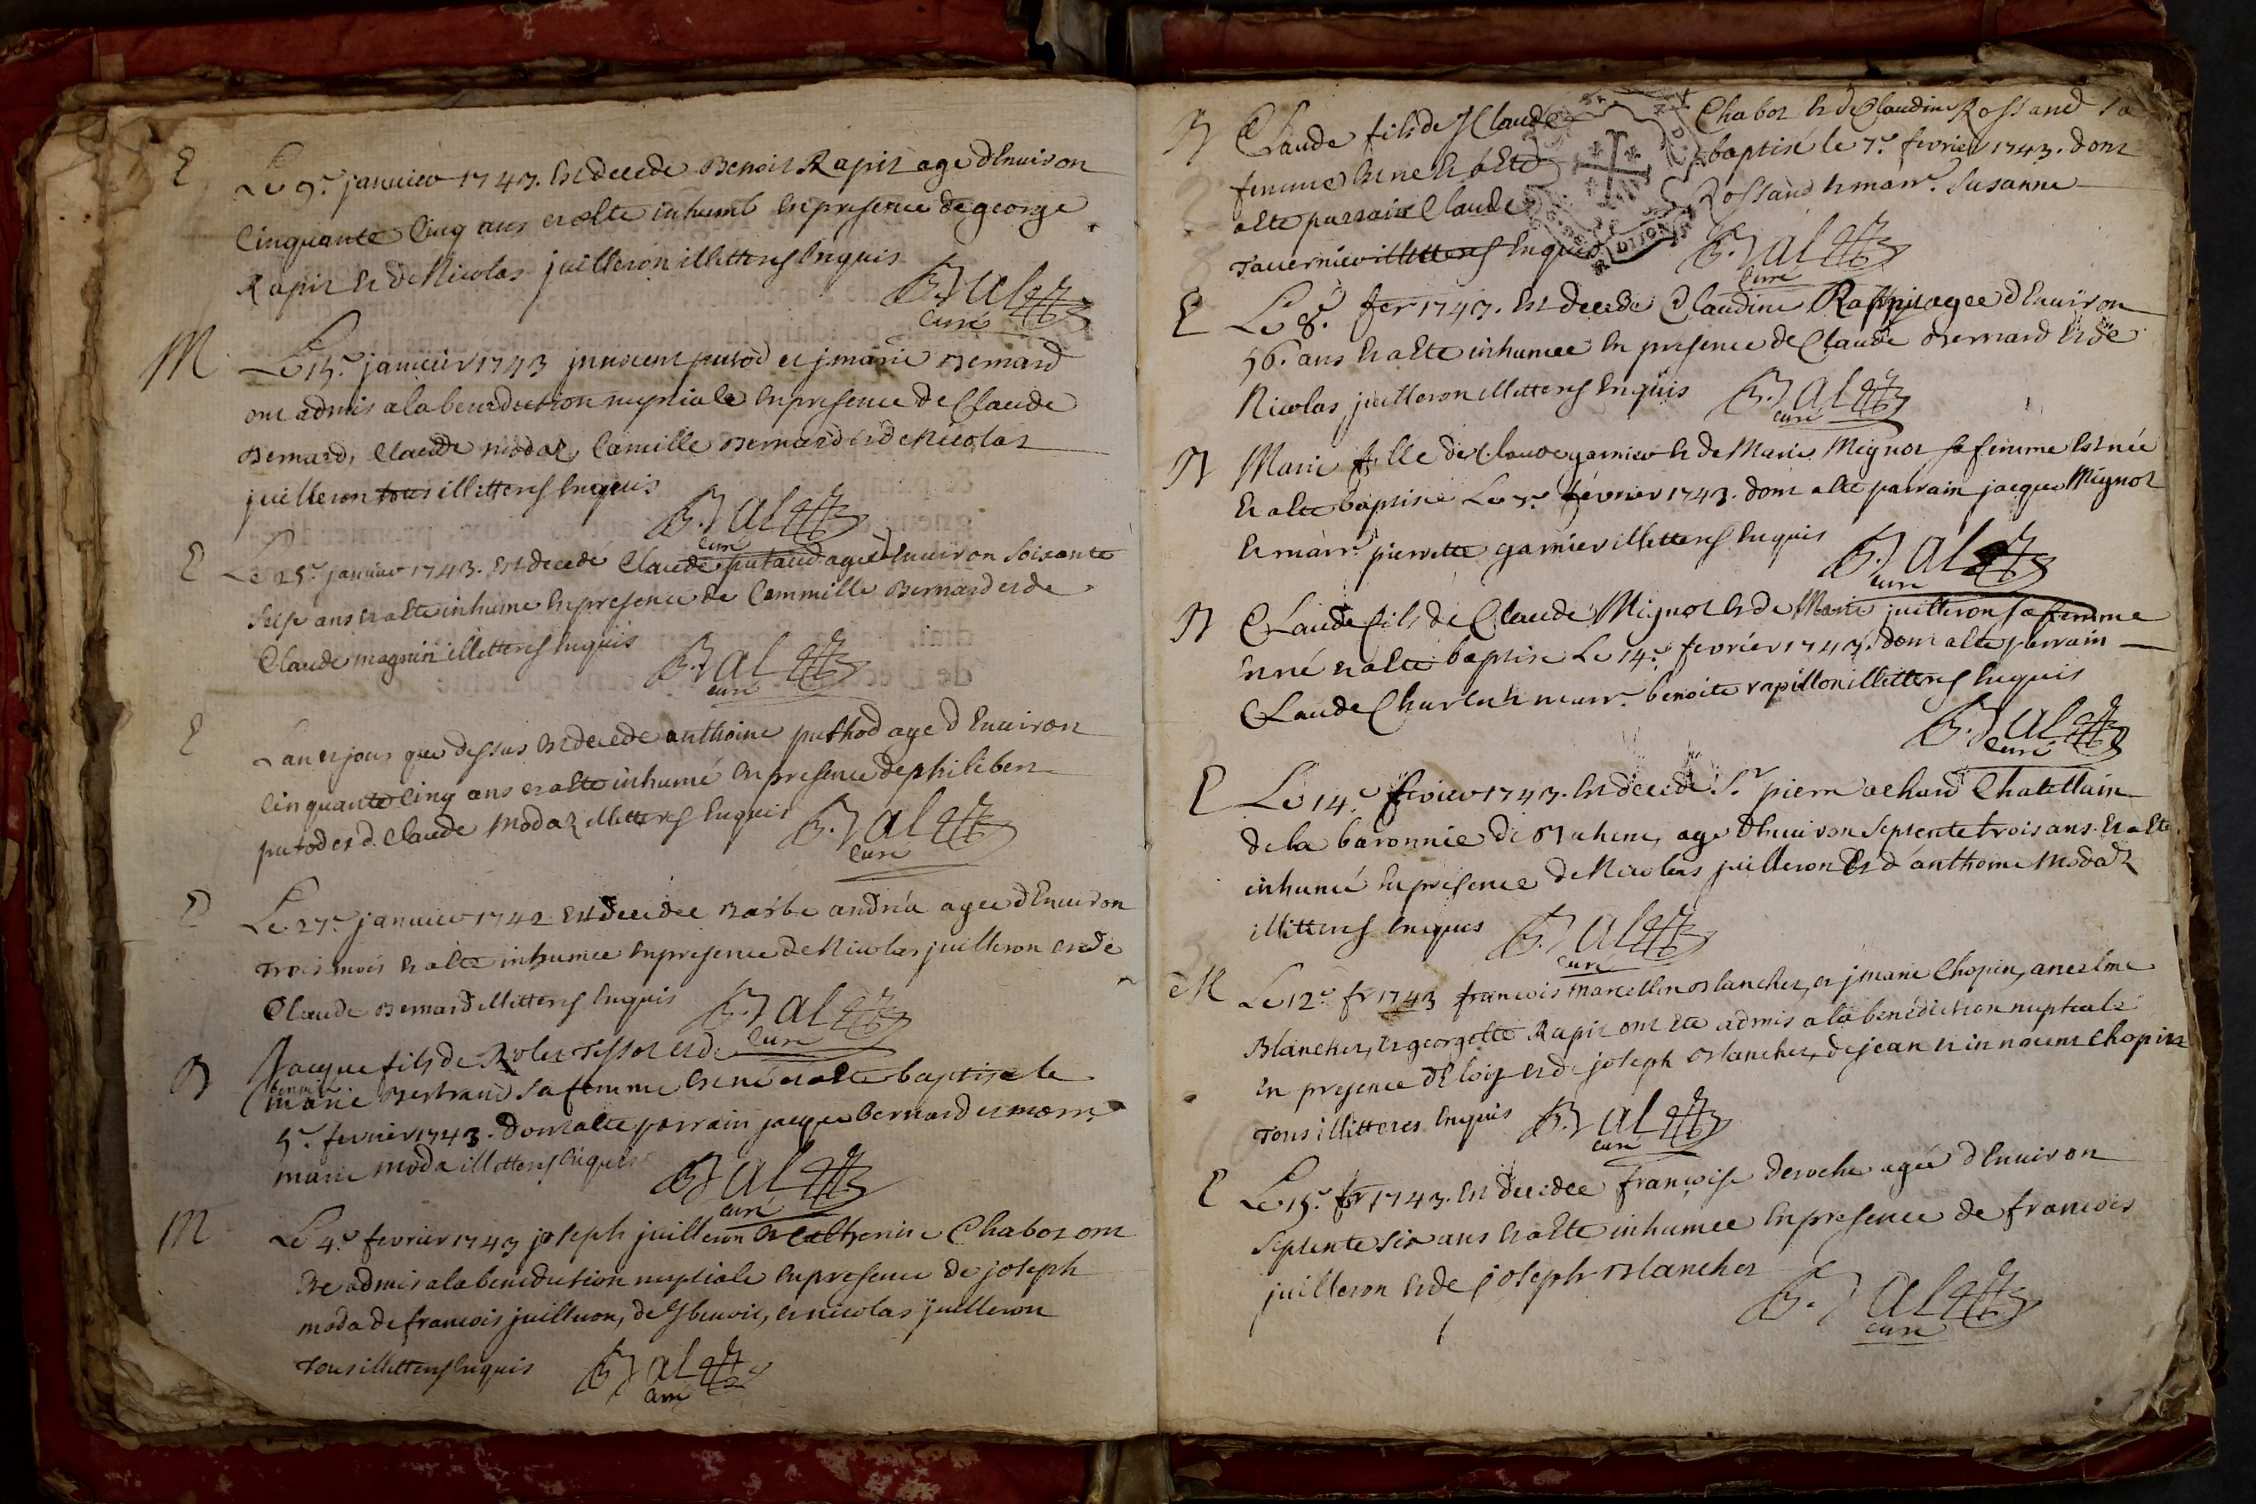 E
Le 9.e janvier 1743. est decede Benoit Rapit age d'Environ
Cinquante Cinq ans et a ete inhumé En presence de george
Rapit et de Nicolas juilleron illitteres Enquis
B. Bal
Curé
M
Le 15.e janvier 1743 innocent putod et j. marie Bernard
ont admis a la benediction nuptiale En presence de Claude
Bernard, Claude modaz, Camille Bernard et de Nicolas
juilleron tous illitteres Enquis
Curé
E
Le 25.e janvier 1743. est decedé Claude putaud agé d'Environ soixante
seise ans et a ete inhume En presence de Cammille Bernard et de
Claude magnin illitteres Enquis
curé
E
L'an et jour que dessus est decede anthoine puthod age d'Environ
Cinquante Cinq ans et a ete inhumé En presence de philiber
putod et d. Claude Modaz illitteres Enquis
Curé
E
Le 27.e janvier 1742 est decidee Barbe andréa agee d'Environ
Trois mois et a ete inhumee En presence de Nicolas juilleron et de
Claude Bernard illitteres Enquis
Curé
B
Jacque fils de Tissot et d.
marie Bertrand sa femme est né et a ete baptise le
5.e fevrier 1743. dont a ete parrain jacque bernard et marr.
marie moda illitteres Enquis
curé
M
Le 4.e fevrier 1743 joseph juilleron et Catherine Chabot ont
ete admis a la benediction nuptiale En presence de joseph
moda de francois juilleron, de j benoit, et nicolas juilleron
Tous illitteres Enquis
Curé
B
Claude fils de j Claude Chabot et de Claudine Rossand sa
femme est né et a ete baptisé le 7.e fevrier 1743. dont
a ete parrain Claude Rossand et marr.e Susanne
Tavernier illitteres Enquis
DIJON
Curé
E
Le 8.e fer 1743. est decede Claudine Rappit agee d'Environ
56. ans et a ete inhumee En presence de Claude Bernard et de
Nicolas juilleron illitteres Enquis
curé
B
Marie fille de Claude garnier et de Marie Mignot sa femme est née
et a ete baptisée Le février 1743. dont a ete parrain jacque Mignot
et marr.e pierrette garnier illitteres Enquis
curé
B
CLaude fils de Claude Mignot et de Marie juilleron sa femme
est né et a ete baptise Le 14.e fevriér 1743. dont a ete parrain
CLaude et marr.e benoite rapillon illitteres Enquis
Curé
E
Le 14.e fevier 1743. est decede S.r pierre achard Chatellain
de la baronnie de age d'Environ septente trois ans. et a ete
inhumé En presence de Nicolas juilleron et d'anthoine Modaz
illitteres Enquis
curé
M
Le 12.e fr 1743 francois marcellin blanchet, et j marie Chopin, anselme
Blanchet, et georgette Rapit ont ete admis a la benediction nuptiale
En presence d'Eloy et d. joseph blanchet, de jean et innocent Chopin
Tous illitteres Enquis
curé
E
Le 15.e fr 1743. est decedee françoise deroche agee d'Environ
septente six ans et a ete inhumee En presence de francois
juilleron et de joseph Blanchet
curé